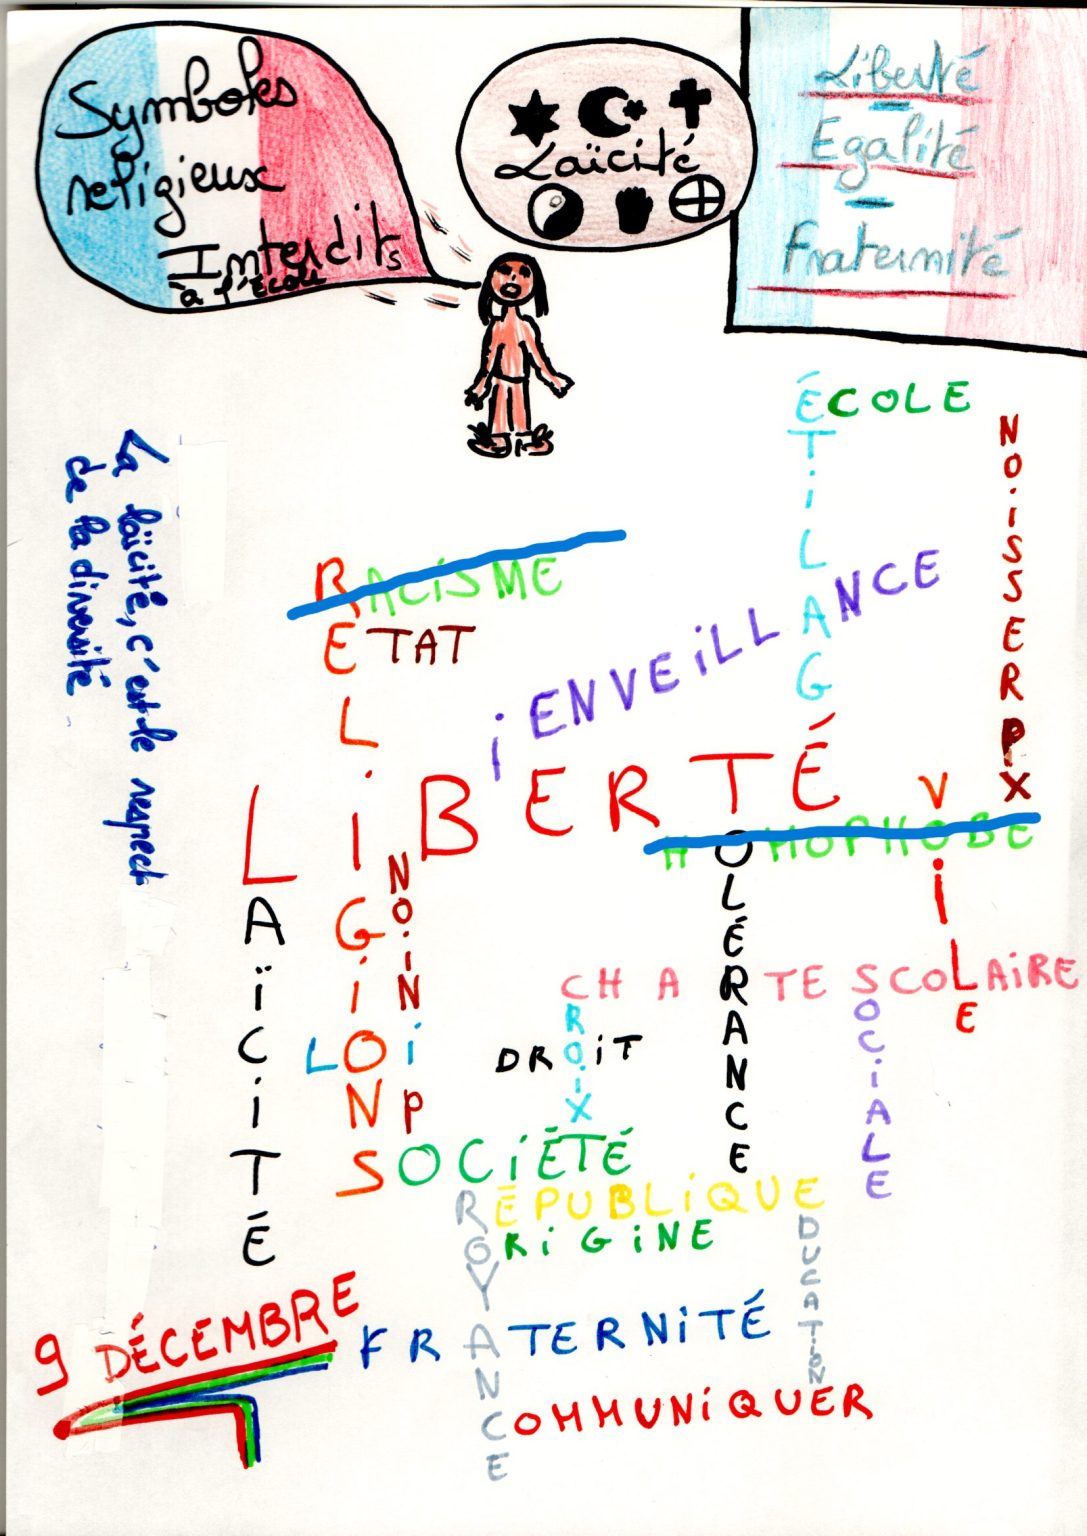 Symboles
religieux
Interdits
à l'école
Laïcité
Liberté
-
Egalité
-
Fraternité
La laïcité, c'est le respect
de la diversité
ÉCOLE
ÉGALITÉ
EXPRESSION
RACISME
RELIGIONS
ETAT
BiENVEiLLANCE
LIBERTÉ
VOiLE
HOMOPHOBE
LAÏCiTÉ
OPiNiON
TOLÉRANCE
CHARTE SCOLAiRE
CROiX
SOCiALE
LOi
DROiT
SOCiÉTÉ
RÉPUBLiQUE
CROYANCE
ORiGiNE
ÉDUCATiON
9 DÉCEMBRE
FRATERNiTÉ
COMMUNiQUER